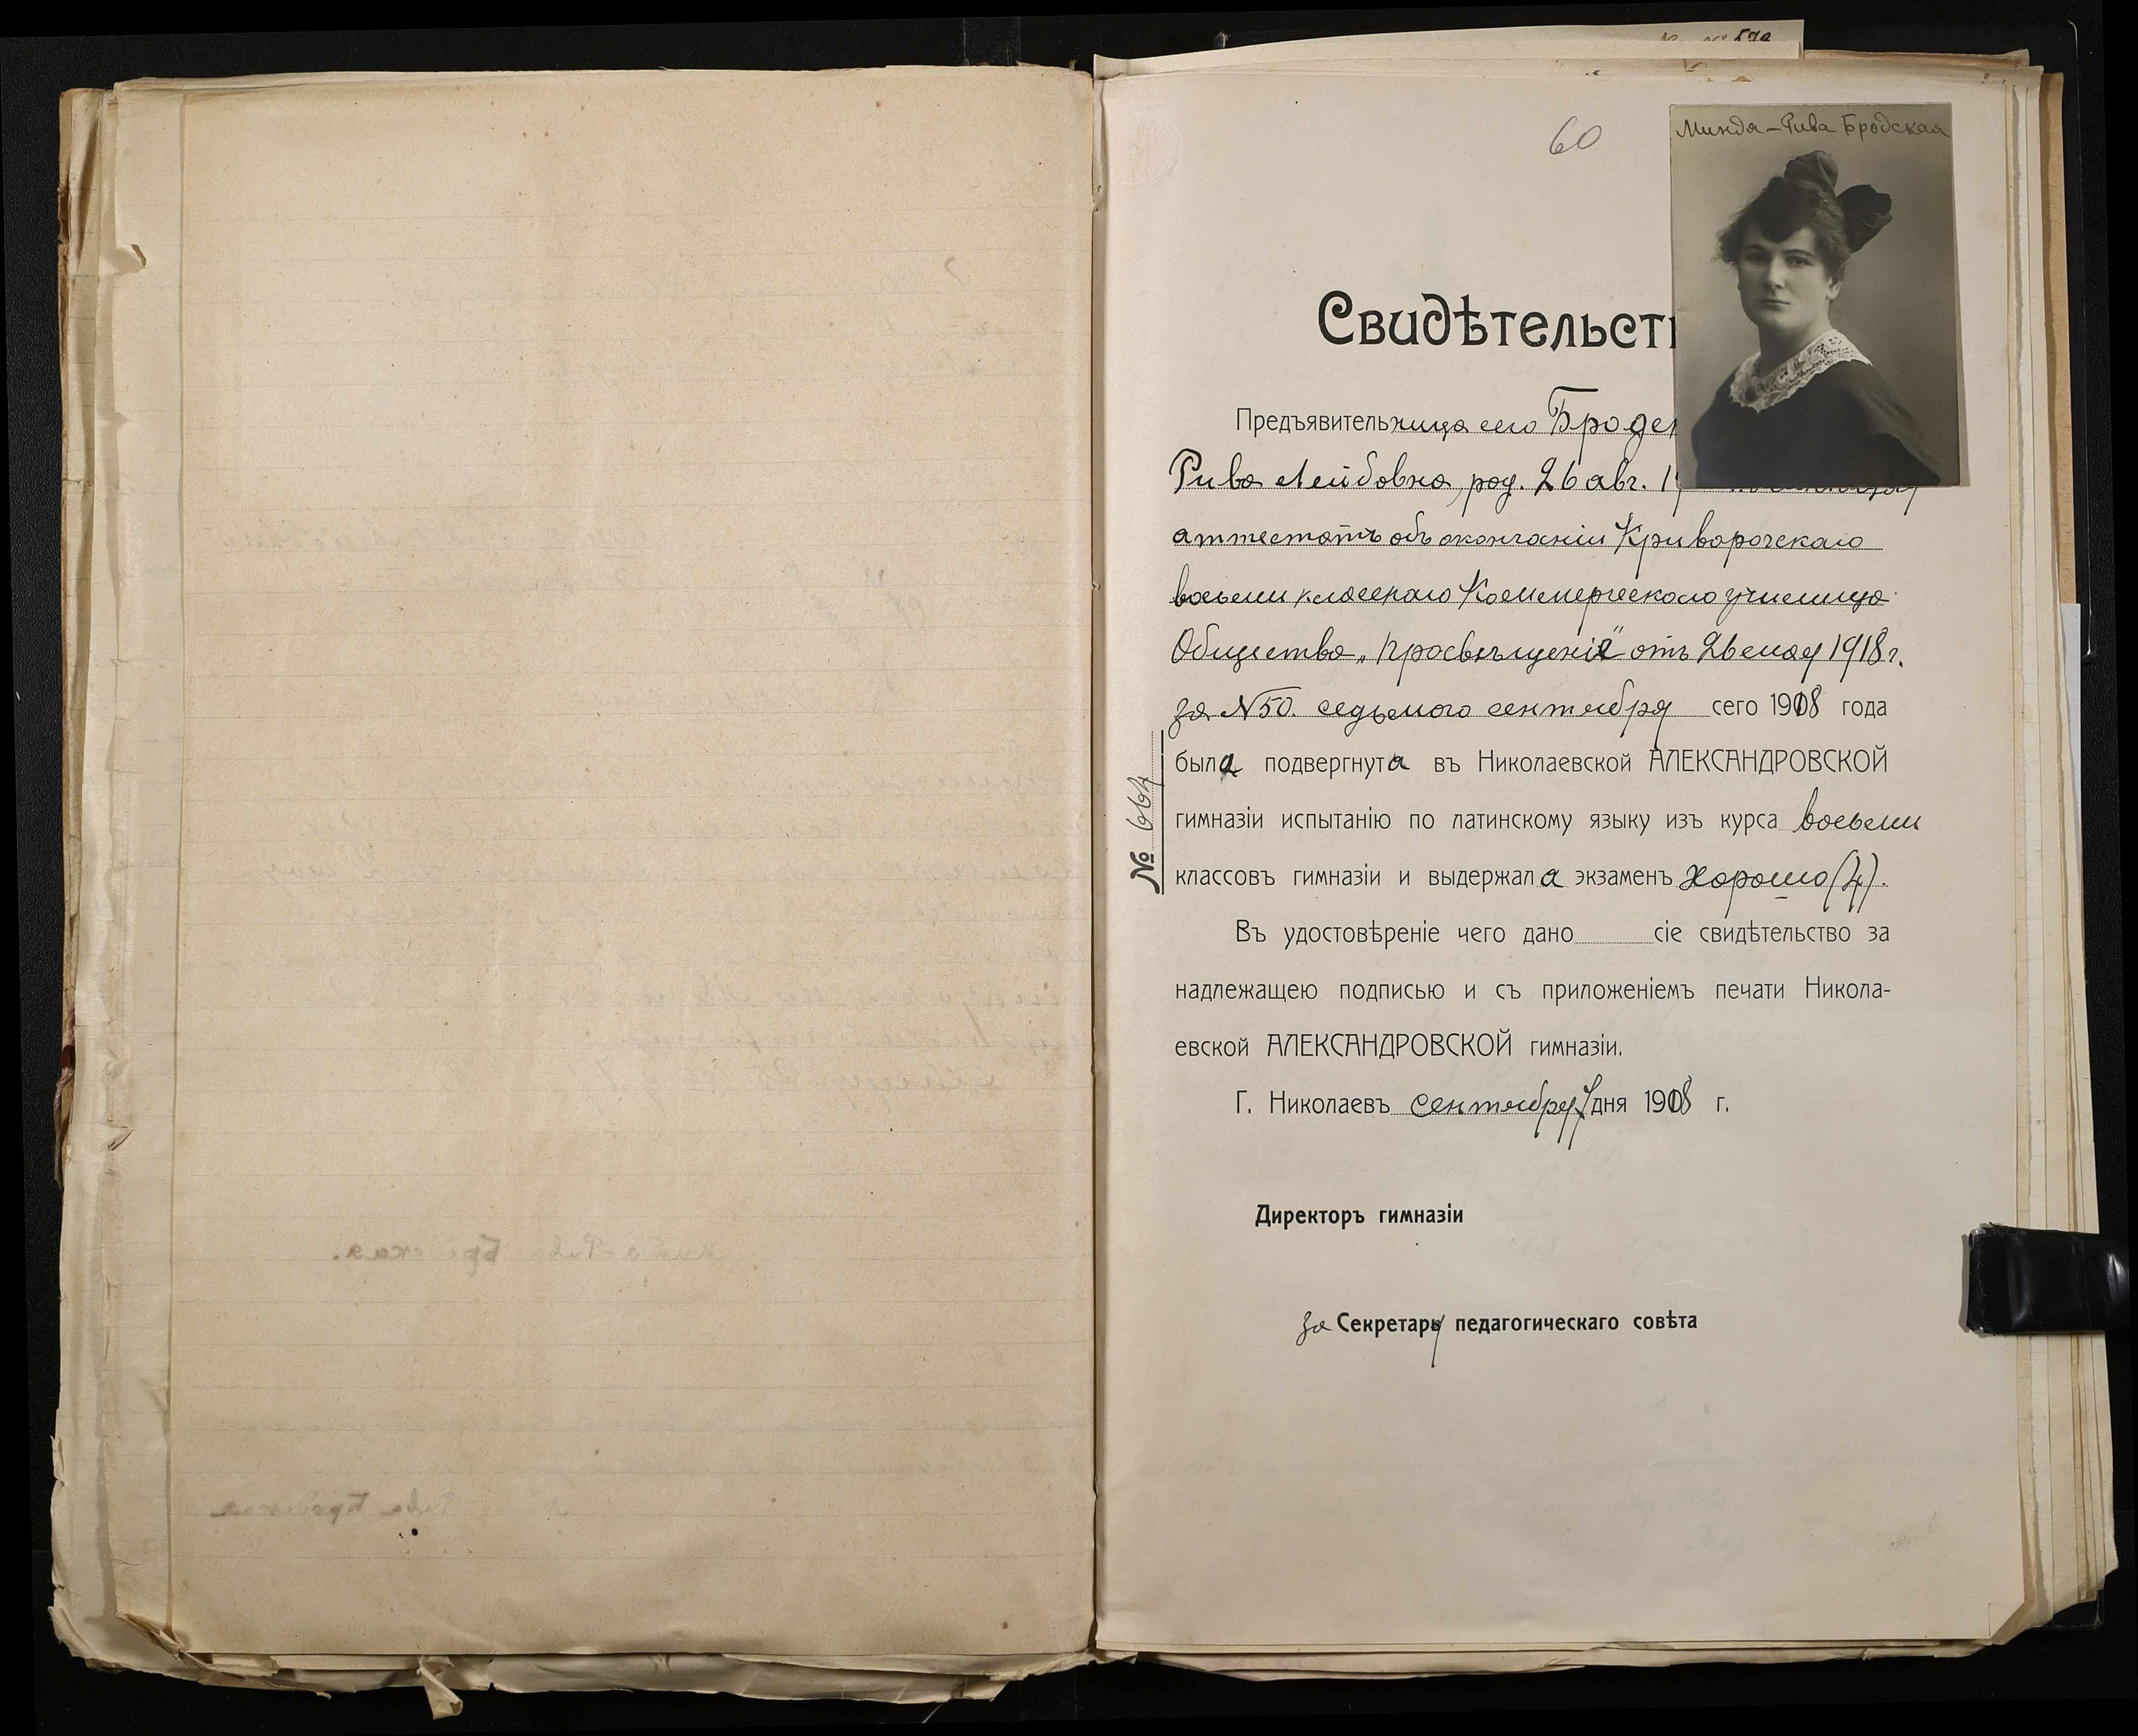 60
Минда-Рива Бродская
Свидѣтельств
Предъявительница сего Бродск
Рива Лейбовна, род. 26 авг. 1
аттестатъ объ окончаніи Криворожскаго
восьмикласснаго Коммерческаго училища
Общества „Просвѣщеніе" отъ 26 мая 1918 г.
за №50. седьмого сентября сего 1918 года
была подвергнута въ Николаевской АЛЕКСАНДРОВСКОЙ
гимназіи испытанію по латинскому языку изъ курса восьми
классовъ гимназіи и выдержала экзаменъ хорошо (4).
Въ удостовѣреніе чего дано сіе свидѣтельство за
надлежащею подписью и съ приложеніемъ печати Никола-
евской АЛЕКСАНДРОВСКОЙ гимназіи.
Г. Николаевъ сентября 7 дня 1918 г.
Директоръ гимназіи
за Секретаря педагогическаго совѣта
№ 664